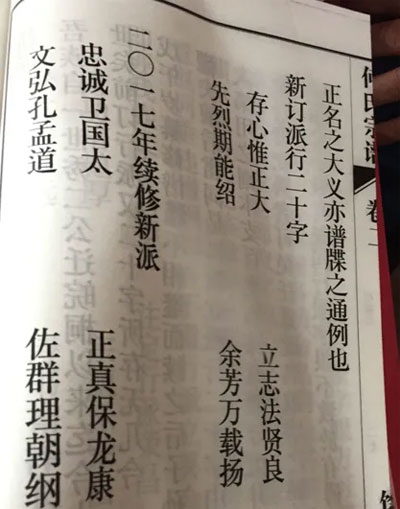 何氏宗谱 卷二
正名之大义亦谱牒之通例也
新订派行二十字
存心惟正大 立志法贤良
先烈期能绍 余芳万载扬
二〇一七年续修新派
忠诚卫国太 正真保龙康
文弘孔孟道 佐群理朝纲